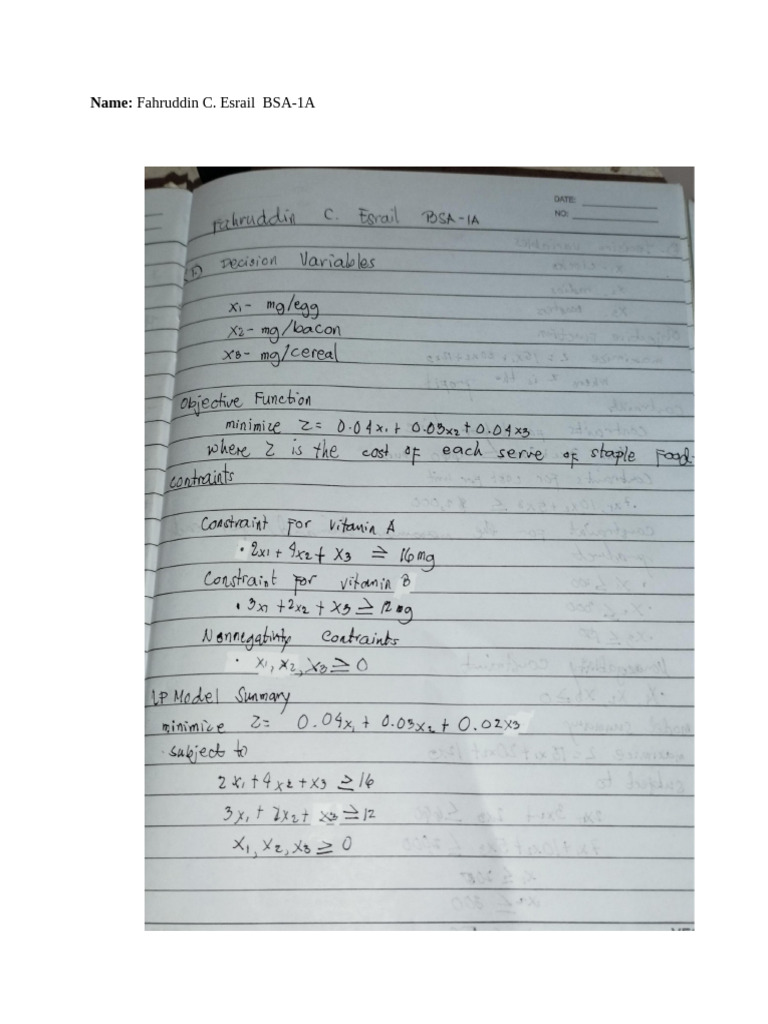 Name: Fahruddin C. Esrail BSA-1A
DATE:
NO:
Fahruddin C. Esrail BSA-1A
1) Decision Variables
x1 - mg/egg
x2 - mg/bacon
x3 - mg/cereal
Objective Function
minimize Z = 0.04x1 + 0.03x2 + 0.04x3
where Z is the cost of each serve of staple food.
contraints
Constraint for Vitamin A
• 2x1 + 4x2 + x3 ≥ 16mg
Constraint for vitamin B
• 3x1 + 2x2 + x3 ≥ 12mg
Nonnegativity Contraints
• x1, x2, x3 ≥ 0
LP Model Summary
minimize Z = 0.04x1 + 0.03x2 + 0.02x3
subject to
2x1 + 4x2 + x3 ≥ 16
3x1 + 2x2 + x3 ≥ 12
x1, x2, x3 ≥ 0